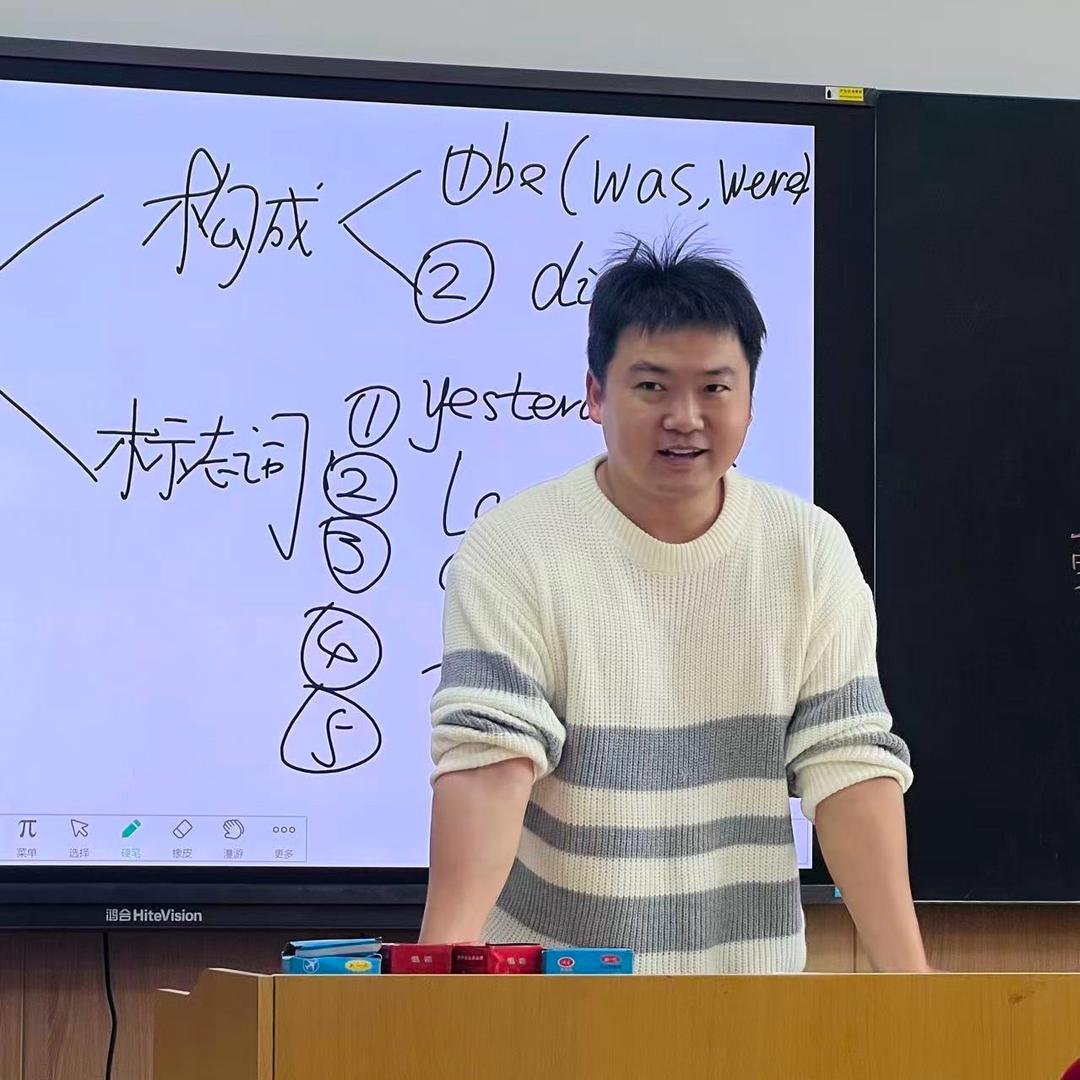 构成
①be(was,were)
② di
标志词
① yester
②
③
④
⑤
菜单 选择 硬笔 橡皮 漫游 更多
鸿合HiteVision